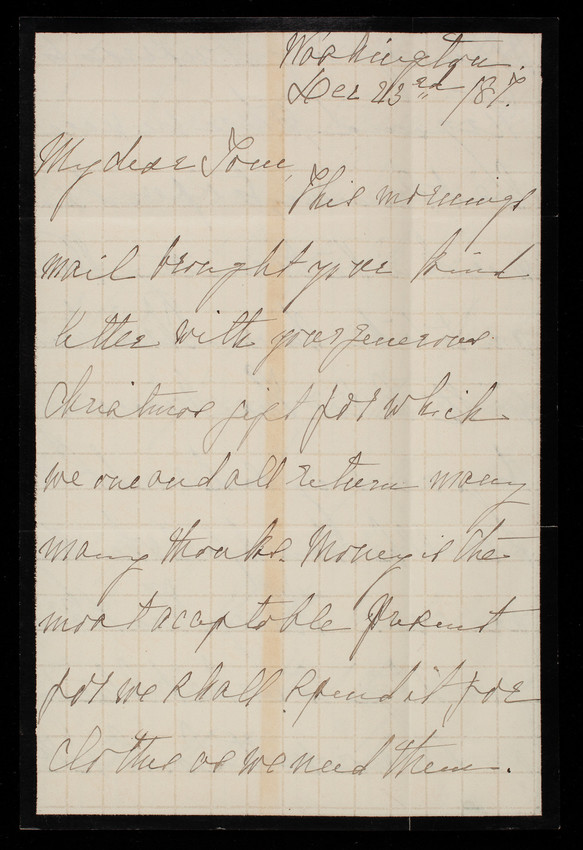 Washington.
Dec 23rd /87.
My dear Tom,
This mornings
mail brought your kind
letter with your generous
Christmas gift for which
we one and all return many
many thanks. Money is the
most acaptable present
for we shall spend it for
clothes as we need them.